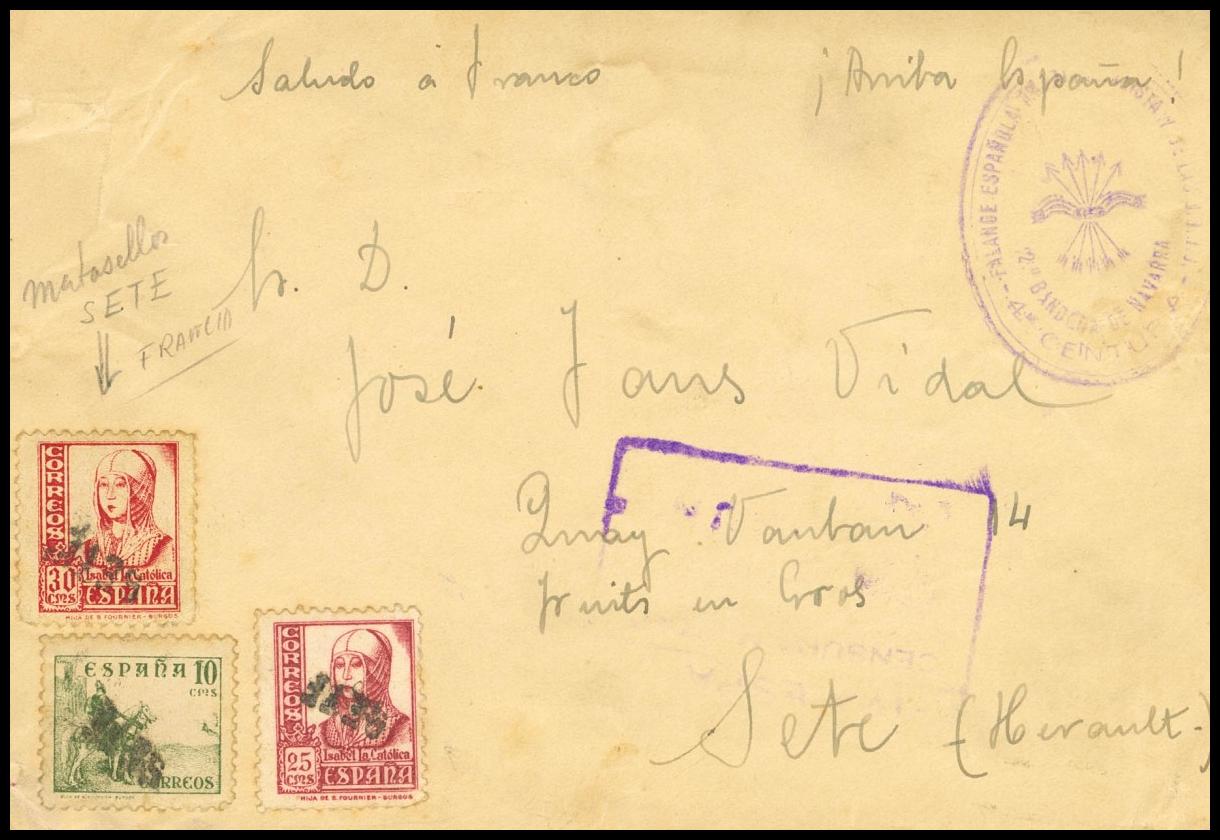 Saludo a Franco ¡Arriba España!
FALANGE ESPAÑOLA
2ª BANDERA DE NAVARRA
4ª CENTURIA
matasellos
SETE
FRANCIA
Sr. D.
José Jans Vidal
Quay Vauban 14
fruits en Gros
Sete (Herault.)
CENSURA
CORREOS
30
CMS
Isabel la Católica
ESPAÑA
HIJA DE B. FOURNIER - BURGOS
SETE
ESPAÑA 10
CMS
CORREOS
CORREOS
25
CMS
Isabel la Católica
ESPAÑA
HIJA DE B. FOURNIER - BURGOS
SETE